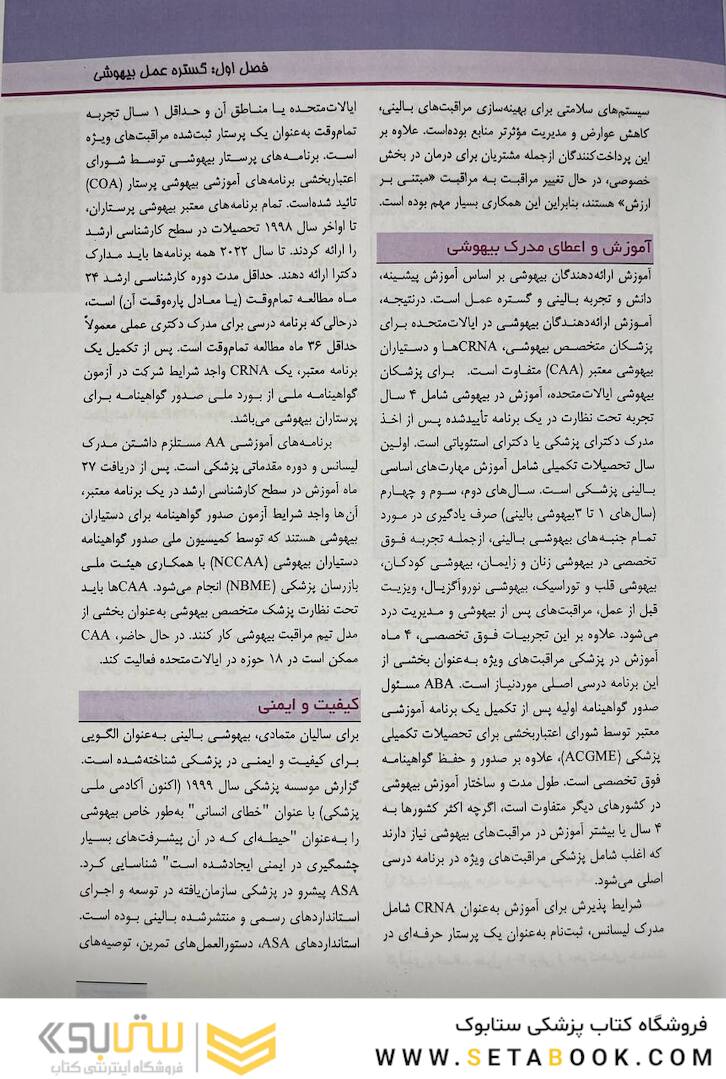 فصل اول: گستره عمل بیهوشی
سیستم‌های سلامتی برای بهینه‌سازی مراقبت‌های بالینی،
کاهش عوارض و مدیریت مؤثرتر منابع بوده‌است. علاوه بر
این پرداخت‌کنندگان ازجمله مشتریان برای درمان در بخش
خصوصی، در حال تغییر مراقبت به مراقبت «مبتنی بر
ارزش» هستند، بنابراین این همکاری بسیار مهم بوده است.
آموزش و اعطای مدرک بیهوشی
آموزش ارائه‌دهندگان بیهوشی بر اساس آموزش پیشینه،
دانش و تجربه بالینی و گستره عمل است. درنتیجه،
آموزش ارائه‌دهندگان بیهوشی در ایالات‌متحده برای
پزشکان متخصص بیهوشی، CRNAها و دستیاران
بیهوشی معتبر (CAA) متفاوت است. برای پزشکان
بیهوشی ایالات‌متحده، آموزش در بیهوشی شامل ۴ سال
تجربه تحت نظارت در یک برنامه تأییدشده پس از اخذ
مدرک دکترای پزشکی یا دکترای استئوپاتی است. اولین
سال تحصیلات تکمیلی شامل آموزش مهارت‌های اساسی
بالینی پزشکی است. سال‌های دوم، سوم و چهارم
(سال‌های ۱ تا ۳بیهوشی بالینی) صرف یادگیری در مورد
تمام جنبه‌های بیهوشی بالینی، ازجمله تجربه فوق
تخصصی در بیهوشی زنان و زایمان، بیهوشی کودکان،
بیهوشی قلب و توراسیک، بیهوشی نوروآگزیال، ویزیت
قبل از عمل، مراقبت‌های پس از بیهوشی و مدیریت درد
می‌شود. علاوه بر این تجربیات فوق تخصصی، ۴ ماه
آموزش در پزشکی مراقبت‌های ویژه به‌عنوان بخشی از
این برنامه درسی اصلی موردنیاز است. ABA مسئول
صدور گواهینامه اولیه پس از تکمیل یک برنامه آموزشی
معتبر توسط شورای اعتباربخشی برای تحصیلات تکمیلی
پزشکی (ACGME)، علاوه بر صدور و حفظ گواهینامه
فوق تخصصی است. طول مدت و ساختار آموزش بیهوشی
در کشورهای دیگر متفاوت است، اگرچه اکثر کشورها به
۴ سال یا بیشتر آموزش در مراقبت‌های بیهوشی نیاز دارند
که اغلب شامل پزشکی مراقبت‌های ویژه در برنامه درسی
اصلی می‌شود.
شرایط پذیرش برای آموزش به‌عنوان CRNA شامل
مدرک لیسانس، ثبت‌نام به‌عنوان یک پرستار حرفه‌ای در
ایالات‌متحده یا مناطق آن و حداقل ۱ سال تجربه
تمام‌وقت به‌عنوان یک پرستار ثبت‌شده مراقبت‌های ویژه
است. برنامه‌های پرستار بیهوشی توسط شورای
اعتباربخشی برنامه‌های آموزشی بیهوشی پرستار (COA)
تائید شده‌است. تمام برنامه‌های معتبر بیهوشی پرستاران،
تا اواخر سال ۱۹۹۸ تحصیلات در سطح کارشناسی ارشد
را ارائه کردند. تا سال ۲۰۲۲ همه برنامه‌ها باید مدارک
دکترا ارائه دهند. حداقل مدت دوره کارشناسی ارشد ۲۴
ماه مطالعه تمام‌وقت (یا معادل پاره‌وقت آن) است،
درحالی‌که برنامه درسی برای مدرک دکتری عملی معمولاً
حداقل ۳۶ ماه مطالعه تمام‌وقت است. پس از تکمیل یک
برنامه معتبر، یک CRNA واجد شرایط شرکت در آزمون
گواهینامه ملی از بورد ملی صدور گواهینامه برای
پرستاران بیهوشی می‌باشد.
برنامه‌های آموزشی AA مستلزم داشتن مدرک
لیسانس و دوره مقدماتی پزشکی است. پس از دریافت ۲۷
ماه آموزش در سطح کارشناسی ارشد در یک برنامه معتبر،
آن‌ها واجد شرایط آزمون صدور گواهینامه برای دستیاران
بیهوشی هستند که توسط کمیسیون ملی صدور گواهینامه
دستیاران بیهوشی (NCCAA) با همکاری هیئت ملی
بازرسان پزشکی (NBME) انجام می‌شود. CAAها باید
تحت نظارت پزشک متخصص بیهوشی به‌عنوان بخشی از
مدل تیم مراقبت بیهوشی کار کنند. در حال حاضر، CAA
ممکن است در ۱۸ حوزه در ایالات‌متحده فعالیت کند.
کیفیت و ایمنی
برای سالیان متمادی، بیهوشی بالینی به‌عنوان الگویی
برای کیفیت و ایمنی در پزشکی شناخته‌شده است.
گزارش موسسه پزشکی سال ۱۹۹۹ (اکنون آکادمی ملی
پزشکی) با عنوان "خطای انسانی" به‌طور خاص بیهوشی
را به‌عنوان "حیطه‌ای که در آن پیشرفت‌های بسیار
چشمگیری در ایمنی ایجادشده است" شناسایی کرد.
ASA پیشرو در پزشکی سازمان‌یافته در توسعه و اجرای
استانداردهای رسمی و منتشرشده بالینی بوده است.
استانداردهای ASA، دستورالعمل‌های تمرین، توصیه‌های
فروشگاه کتاب پزشکی ستابوک
WWW.SETABOOK.COM
ستابوک
فروشگاه اینترنتی کتاب